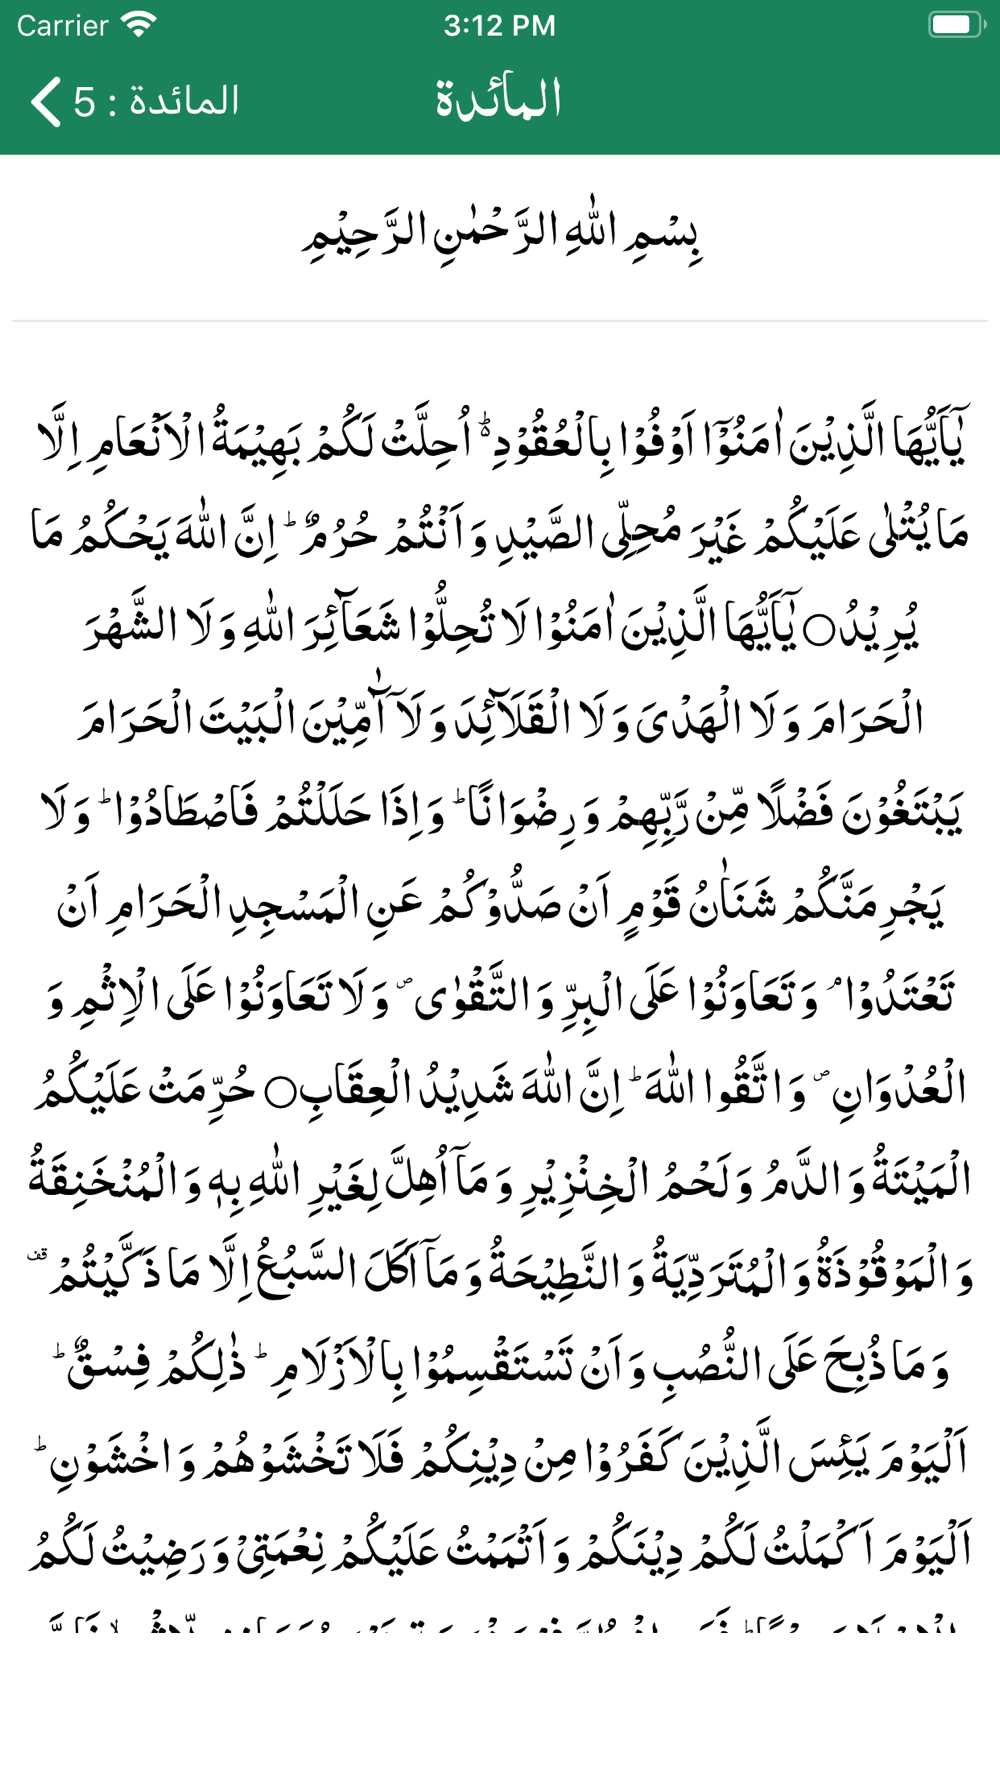 Carrier 3:12 PM
المائدة : 5
المائدة
بِسْمِ اللّٰهِ الرَّحْمٰنِ الرَّحِيْمِ
يٰۤاَيُّهَا الَّذِيْنَ اٰمَنُوْۤا اَوْفُوْا بِالْعُقُوْدِ ؕ۬ اُحِلَّتْ لَكُمْ بَهِيْمَةُ الْاَنْعَامِ اِلَّا
مَا يُتْلٰى عَلَيْكُمْ غَيْرَ مُحِلِّى الصَّيْدِ وَ اَنْتُمْ حُرُمٌ ؕ اِنَّ اللّٰهَ يَحْكُمُ مَا
يُرِيْدُ○ يٰۤاَيُّهَا الَّذِيْنَ اٰمَنُوْا لَا تُحِلُّوْا شَعَآئِرَ اللّٰهِ وَ لَا الشَّهْرَ
الْحَرَامَ وَ لَا الْهَدْىَ وَ لَا الْقَلَآئِدَ وَ لَاۤ آٰمِّيْنَ الْبَيْتَ الْحَرَامَ
يَبْتَغُوْنَ فَضْلًا مِّنْ رَّبِّهِمْ وَ رِضْوَانًا ؕ وَ اِذَا حَلَلْتُمْ فَاصْطَادُوْا ؕ وَ لَا
يَجْرِمَنَّكُمْ شَنَاٰنُ قَوْمٍ اَنْ صَدُّوْكُمْ عَنِ الْمَسْجِدِ الْحَرَامِ اَنْ
تَعْتَدُوْا ۘ وَ تَعَاوَنُوْا عَلَى الْبِرِّ وَ التَّقْوٰى ۪ وَ لَا تَعَاوَنُوْا عَلَى الْاِثْمِ وَ
الْعُدْوَانِ ۪ وَ اتَّقُوا اللّٰهَ ؕ اِنَّ اللّٰهَ شَدِيْدُ الْعِقَابِ○ حُرِّمَتْ عَلَيْكُمُ
الْمَيْتَةُ وَ الدَّمُ وَ لَحْمُ الْخِنْزِيْرِ وَ مَاۤ اُهِلَّ لِغَيْرِ اللّٰهِ بِهٖ وَ الْمُنْخَنِقَةُ
وَ الْمَوْقُوْذَةُ وَ الْمُتَرَدِّيَةُ وَ النَّطِيْحَةُ وَ مَاۤ اَكَلَ السَّبُعُ اِلَّا مَا ذَكَّيْتُمْ قف
وَ مَا ذُبِحَ عَلَى النُّصُبِ وَ اَنْ تَسْتَقْسِمُوْا بِالْاَزْلَامِ ؕ ذٰلِكُمْ فِسْقٌ ؕ
اَلْيَوْمَ يَئِسَ الَّذِيْنَ كَفَرُوْا مِنْ دِيْنِكُمْ فَلَا تَخْشَوْهُمْ وَ اخْشَوْنِ ؕ
اَلْيَوْمَ اَكْمَلْتُ لَكُمْ دِيْنَكُمْ وَ اَتْمَمْتُ عَلَيْكُمْ نِعْمَتِىْ وَ رَضِيْتُ لَكُمُ